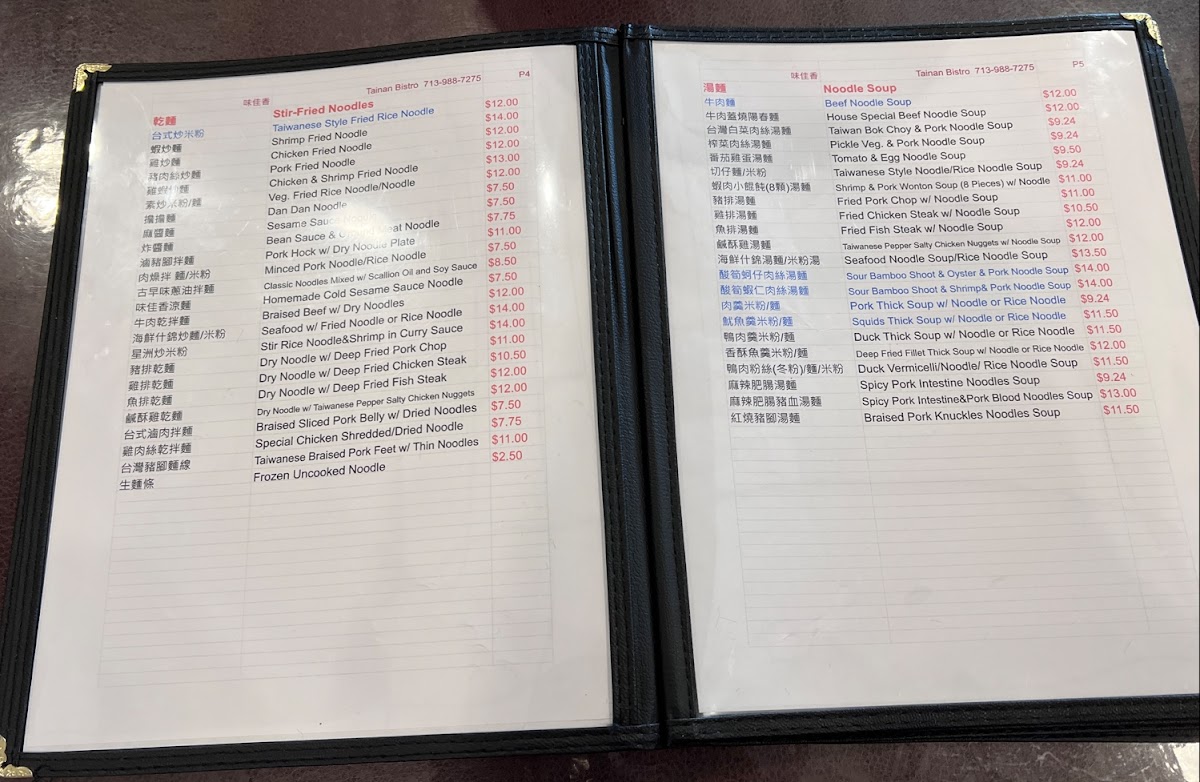 味佳香 Tainan Bistro 713-988-7275 P4
乾麵 Stir-Fried Noodles
台式炒米粉 Taiwanese Style Fried Rice Noodle $12.00
蝦炒麵 Shrimp Fried Noodle $14.00
雞炒麵 Chicken Fried Noodle $12.00
豬肉絲炒麵 Pork Fried Noodle $12.00
雞蝦炒麵 Chicken & Shrimp Fried Noodle $13.00
素炒米粉/麵 Veg. Fried Rice Noodle/Noodle $12.00
擔擔麵 Dan Dan Noodle $7.50
麻醬麵 Sesame $7.50
炸醬麵 Bean Sauce & Noodle $7.75
滷豬腳拌麵 Pork Hock w/ Dry Noodle Plate $11.00
肉燥拌 麵/米粉 Minced Pork Noodle/Rice Noodle $7.50
古早味蔥油拌麵 Classic Noodles Mixed w/ Scallion Oil and Soy Sauce $8.50
味佳香涼麵 Homemade Cold Sesame Sauce Noodle $7.50
牛肉乾拌麵 Braised Beef w/ Dry Noodles $12.00
海鮮什錦炒麵/米粉 Seafood w/ Fried Noodle or Rice Noodle $14.00
星洲炒米粉 Stir Rice Noodle&Shrimp in Curry Sauce $14.00
豬排乾麵 Dry Noodle w/ Deep Fried Pork Chop $11.00
雞排乾麵 Dry Noodle w/ Deep Fried Chicken Steak $10.50
魚排乾麵 Dry Noodle w/ Deep Fried Fish Steak $12.00
鹹酥雞乾麵 Dry Noodle w/ Taiwanese Pepper Salty Chicken Nuggets $12.00
台式滷肉拌麵 Braised Sliced Pork Belly w/ Dried Noodles $7.50
雞肉絲乾拌麵 Special Chicken Shredded/Dried Noodle $7.75
台灣豬腳麵線 Taiwanese Braised Pork Feet w/ Thin Noodles $11.00
生麵條 Frozen Uncooked Noodle $2.50
味佳香 Tainan Bistro 713-988-7275 P5
湯麵 Noodle Soup
牛肉麵 Beef Noodle Soup $12.00
牛肉蓋燒陽春麵 House Special Beef Noodle Soup $12.00
台灣白菜肉絲湯麵 Taiwan Bok Choy & Pork Noodle Soup $9.24
榨菜肉絲湯麵 Pickle Veg. & Pork Noodle Soup $9.24
番茄雞蛋湯麵 Tomato & Egg Noodle Soup $9.50
切仔麵/米粉 Taiwanese Style Noodle/Rice Noodle Soup $9.24
蝦肉小餛飩(8顆)湯麵 Shrimp & Pork Wonton Soup (8 Pieces) w/ Noodle $11.00
豬排湯麵 Fried Pork Chop w/ Noodle Soup $11.00
雞排湯麵 Fried Chicken Steak w/ Noodle Soup $10.50
魚排湯麵 Fried Fish Steak w/ Noodle Soup $12.00
鹹酥雞湯麵 Taiwanese Pepper Salty Chicken Nuggets w/ Noodle Soup $12.00
海鮮什錦湯麵/米粉湯 Seafood Noodle Soup/Rice Noodle Soup $13.50
酸筍蚵仔肉絲湯麵 Sour Bamboo Shoot & Oyster & Pork Noodle Soup $14.00
酸筍蝦仁肉絲湯麵 Sour Bamboo Shoot & Shrimp& Pork Noodle Soup $14.00
肉羹米粉/麵 Pork Thick Soup w/ Noodle or Rice Noodle $9.24
魷魚羹米粉/麵 Squids Thick Soup w/ Noodle or Rice Noodle $11.50
鴨肉羹米粉/麵 Duck Thick Soup w/ Noodle or Rice Noodle $11.50
香酥魚羹米粉/麵 Deep Fried Fillet Thick Soup w/ Noodle or Rice Noodle $12.00
鴨肉粉絲(冬粉)/麵/米粉 Duck Vermicelli/Noodle/ Rice Noodle Soup $11.50
麻辣肥腸湯麵 Spicy Pork Intestine Noodles Soup $9.24
麻辣肥腸豬血湯麵 Spicy Pork Intestine&Pork Blood Noodles Soup $13.00
紅燒豬腳湯麵 Braised Pork Knuckles Noodles Soup $11.50